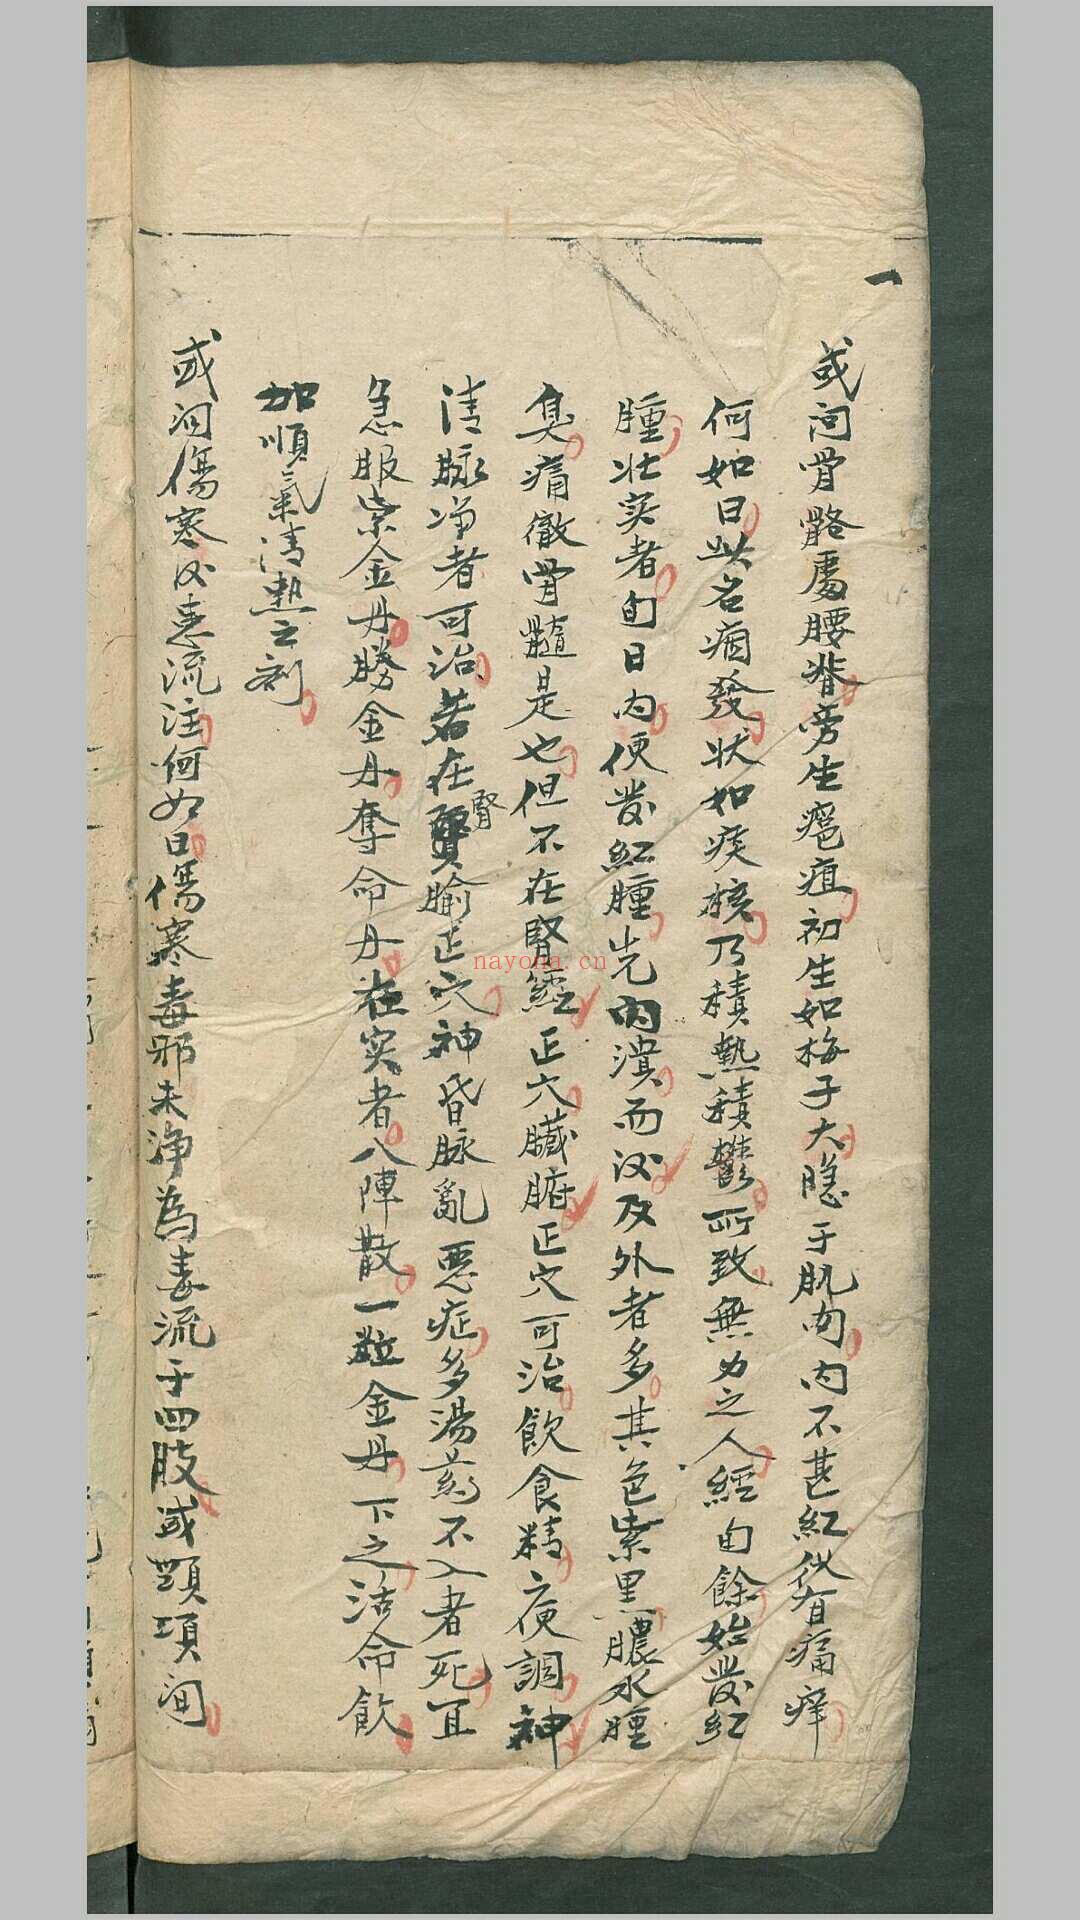 一
或问骨骼處腰背旁生瘡疽初生如梅子大隱于肌肉内不甚紅伙有痛痒
何如曰此名痼發状如痰核乃積熱積鬱所致無力之人經旬餘始發紅
腫壮实者旬日内便發紅腫先内潰而后及外者多其色紫黑膿水腥
臭痛徹骨髓是也但不在腎經正穴臟腑正穴可治飲食精夜調神
清脉净者可治若在腎腧正穴神昏脉亂悪症多湯药不入者死宜
急服紫金丹勝金丹奪命丹壮实者八陣散一粒金丹下之活命飲
加順氣清熱之剤
或问傷寒后患流注何如曰傷寒毒邪未净為毒流于四肢或頸項间
腎
nayona.cn